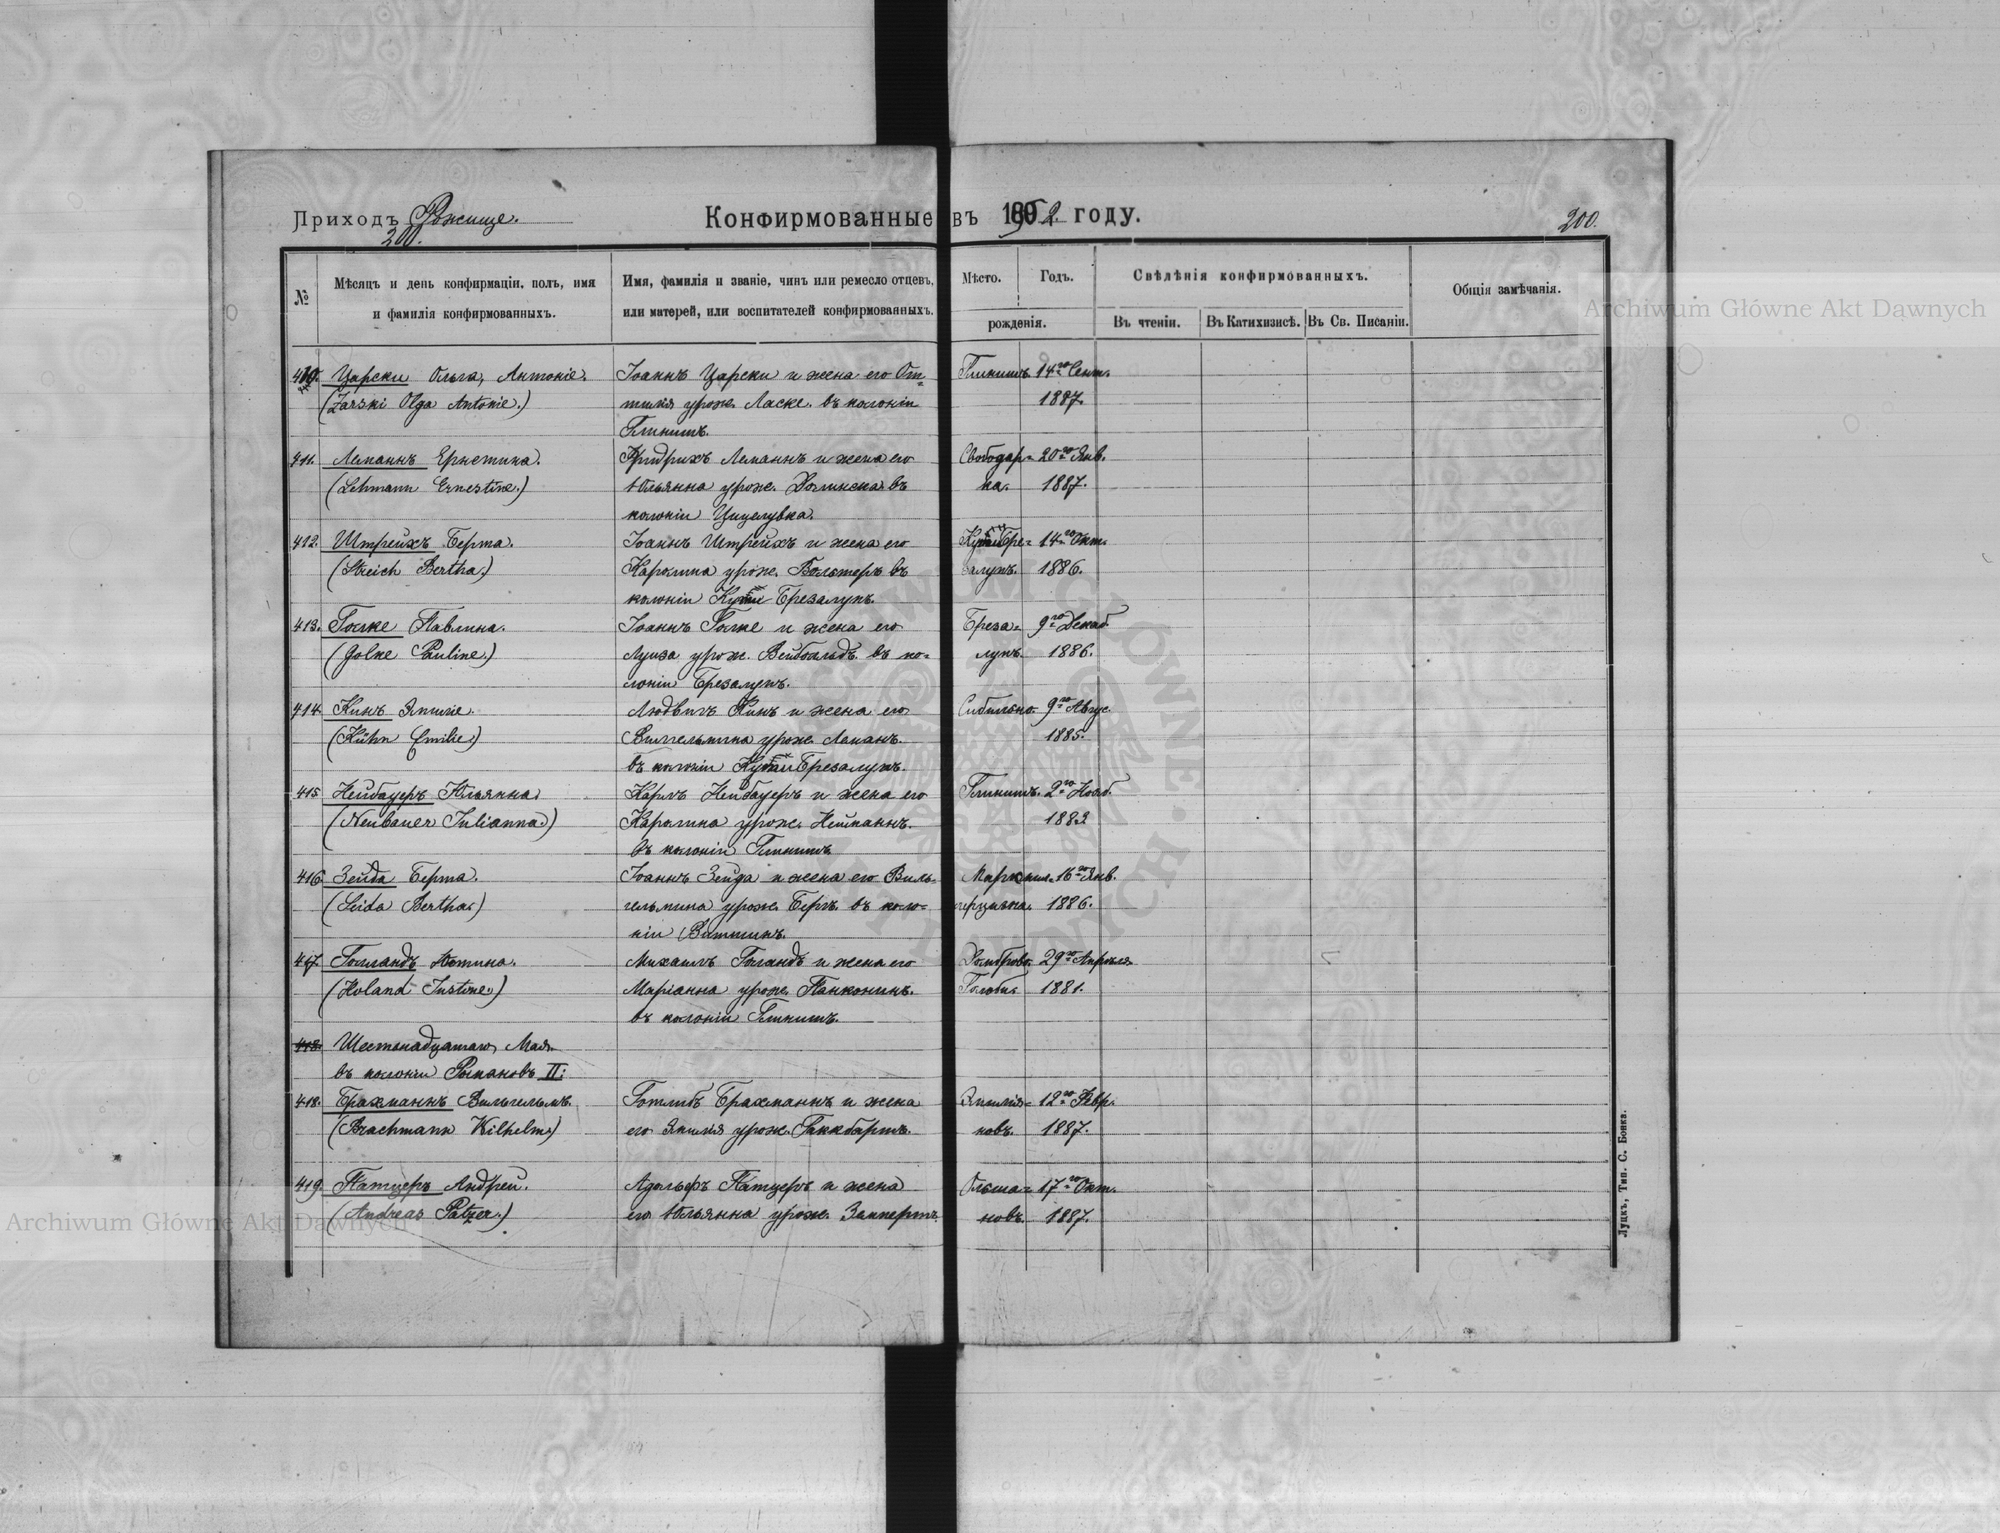 Приходъ Рожище. Конфирмованные въ 1902 году. 200.
200.
№ Мѣсяцъ и день конфирмаціи, полъ, имя и фамилія конфирмованныхъ.
Имя, фамилія и званіе, чинъ или ремесло отцевъ, или матерей, или воспитателей конфирмованныхъ.
Мѣсто. Годъ. рожденія.
Свѣдѣнія конфирмованныхъ.
Въ чтеніи. Въ Катихизисѣ. Въ Св. Писаніи.
Общія замѣчанія.
Archiwum Główne Akt Dawnych
410. Царски Ольга, Антоніе. Іоаннъ Царски и жена его От= Глинищ. 14го Сент.
(Zarski Olga Antonie.) тилія урож. Ласке. въ колоніи 1887.
Глинищъ.
411. Леманнъ Ернстина. Фридрихъ Леманнъ и жена его Свободар= 20го Янв.
(Lehmann Ernestine.) Юльянна урож. Долинска въ ка. 1887.
колоніи Цицелувка.
412. Штрейхъ Берта. Іоаннъ Штрейхъ и жена его Бре= 14го Окт.
(Streich Bertha.) Каролина урож. Вольтеръ въ залукъ. 1886.
колоніи Брезалукъ.
413. Гольке Павлина. Іоаннъ Гольке и жена его Бреза= 9го Декаб.
(Golke Pauline.) Луиза урож. въ ко= лукъ. 1886.
лоніи Брезалукъ.
414. Кинъ Эмиліе. Людвигъ Кинъ и жена его 9го Авгус.
(Kühn Emilie.) Вилгельмина урож. Леманъ. 1885.
въ колоніи Брезалукъ.
415 Нейбауеръ Юльянна. Карлъ Нейбауеръ и жена его Глинищъ. 2го Нояб.
(Neubauer Julianna.) Каролина урож. Нейманнъ. 1883
въ колоніи Глинищъ
416. Зейда Берта. Іоаннъ Зейда и жена его Виль- 16го Янв.
(Seida Bertha.) гельмина урож. Бергъ. въ коло= 1886.
ніи
417. Голландъ Юстина. Михаилъ Голандъ и жена его Домброво. 29го Апрѣля.
(Holand Justine.) Маріанна урож. Панконинъ. 1881.
въ колоніи Глинищъ.
418. Шестнадцатаго Мая.
въ колоніи Романовъ II:
418. Брахманнъ Вильгельмъ. Готлибъ Брахманнъ и жена Эмилія= 12го Февр.
(Brachmann Wilhelm) его Эмилія урож. Гаккбартъ. новъ. 1887.
419. Патцеръ Андрей. Адольфъ Патцеръ и жена Ольша= 17го Окт.
(Andreas Patzer.) его Юльянна урож. новъ. 1887.
Луцкъ, Тип. С. Бонка.
Archiwum Główne Akt Dawnych